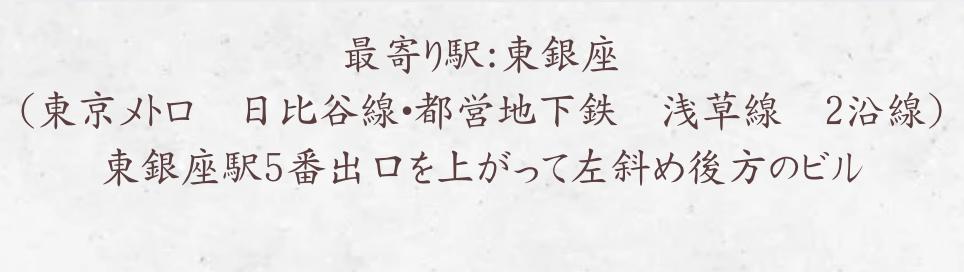 最寄り駅：東銀座
（東京メトロ　日比谷線・都営地下鉄　浅草線　2沿線）
東銀座駅5番出口を上がって左斜め後方のビル